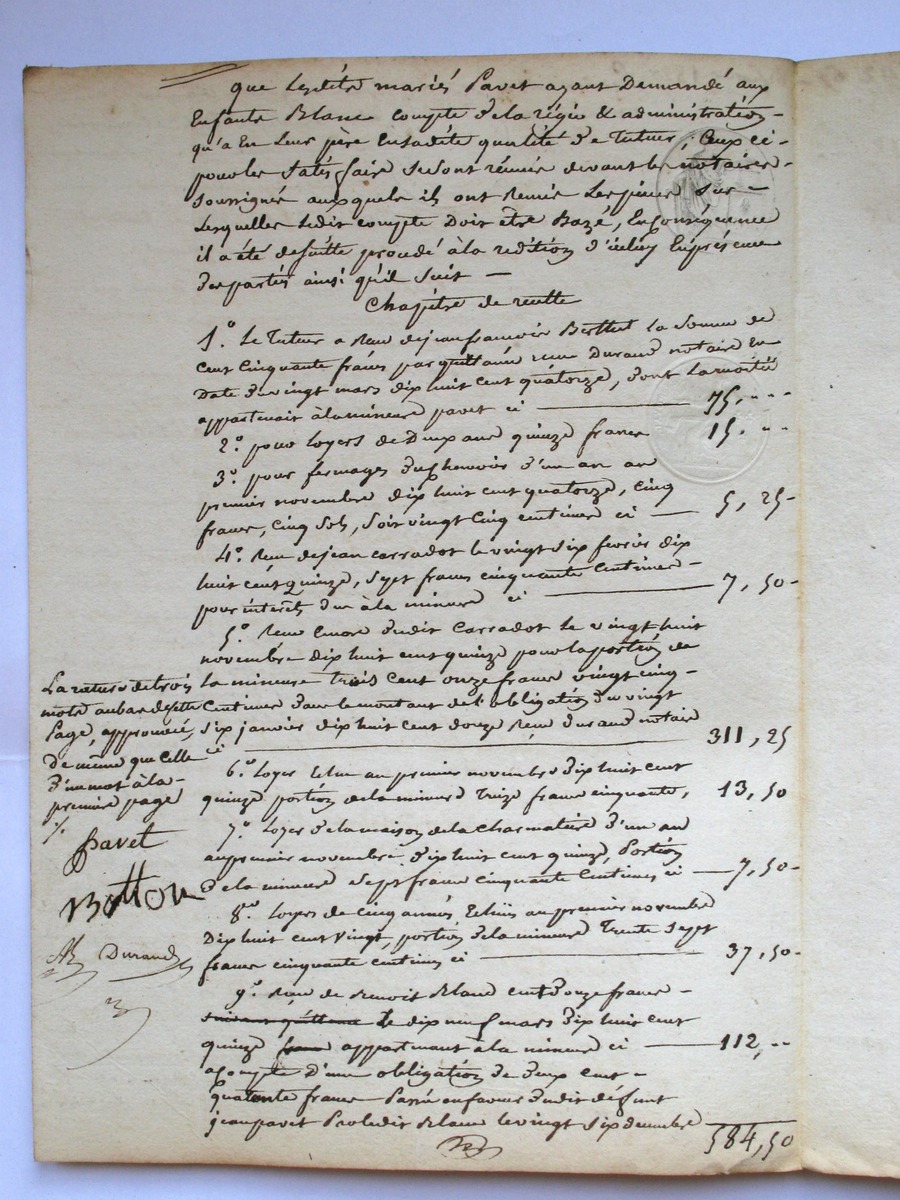 que lesdits mariés Pavet ayant Demandé aux
Enfants Blanc compte de la régie & administration
qu'a Eu Leur père En sadite qualité De Tuteur, Ceux ci
pour les satisfaire se sont réunis devant les notaires
soussignés auxquels ils ont Remis Les pieces sur
Lesquelles Ledit compte Doit être Bazé, En conséquence
il a été de suitte procédé à la redition d'icelui En présence
des parties ainsi qu'il suit —
Chapitre de recette
1.° Le Tuteur a Reçu de jean francois Berthet la Somme de
Cent Cinquante francs par quittance reçue Durand notaire En
Date du vingt mars dix huit cent quatorze, dont La moitié
appartenait à la mineure pavet ci — 75, " "
2.° pour Loyers de Deux ans quinze francs 15. " "
3.° pour fermages du Chenevoir d'un an au
premier novembre dix huit cent quatorze, cinq
francs, cinq sols, soit vingt cinq centimes ci — 5, 25
4.° Reçu de jean carradot le vingt six février dix
huit cent quinze, sept francs cinquante centimes
pour intérêts dus à la mineure ci — 7, 50
5.° Reçu Encore dudit Carradot Le vingt huit
novembre dix huit cent quinze pour la portion de
la mineure trois cent onze francs vingt cinq
Centimes dans le montant de l'obligation du vingt
six janvier dix huit cent douze Reçue durand notaire
ci — 311, 25
6.° Loyer Echu au premier novembre dix huit cent
quinze portion de la mineure Treize francs cinquante, 13, 50
7.° Loyer de la maison de la Charmatiere d'un an
au premier novembre dix huit cent quinze, Portion
de la mineure sept francs cinquante Centimes ci — 7, 50
8.° Loyers de cinq années Echues au premier novembre
Dix huit cent vingt, portion de la mineure Trente sept
francs cinquante centimes ci — 37, 50
9.° Reçu de Benoit Blanc cent douze francs
suivant quittance le dix neuf mars dix huit cent
quinze appartenant à la mineure ci — 112, " "
acompte d'une obligation de deux cent
quarente francs Passée en faveur dudit défunt
jean pavet Par ledit Blanc le vingt six decembre
584, 50
La rature de trois
mots au bas de cette
Page, approuvée,
De même que Celle
d'un mot à la
premiere page
Pavet
Botton
Durand